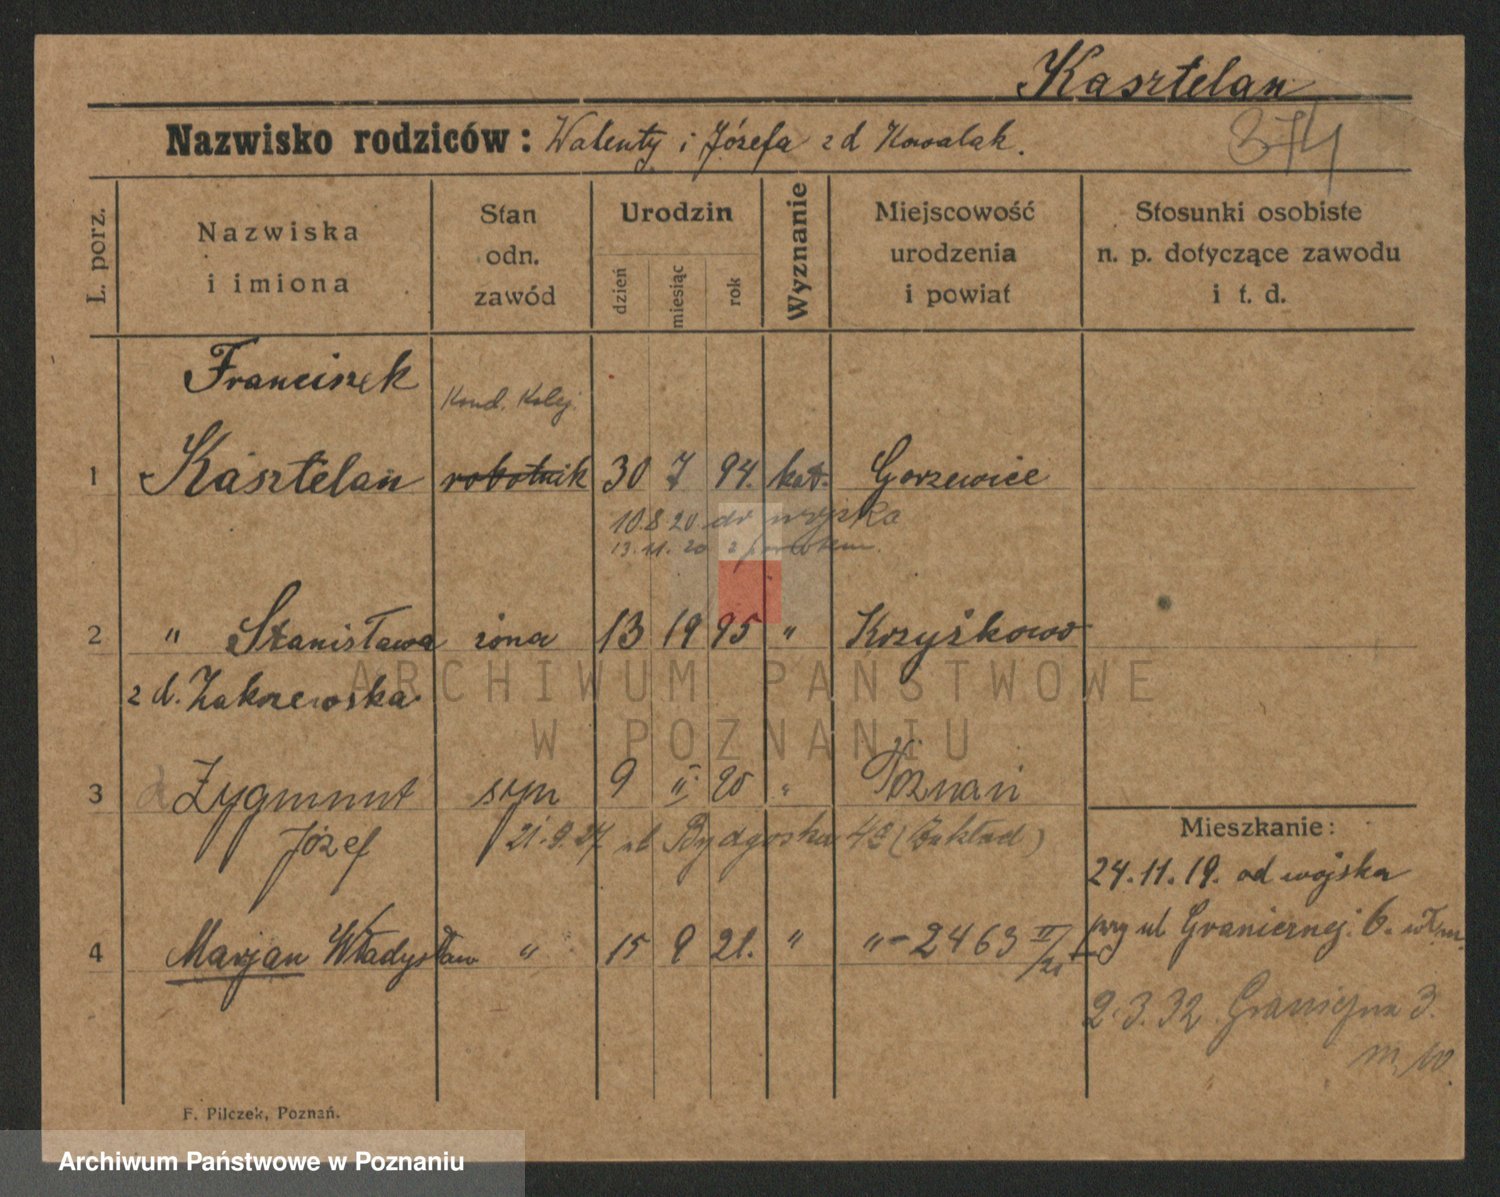 Kasztelan
Nazwisko rodziców: Walenty i Józefa z d Kowalak.
374
L. porz.
Nazwiska i imiona
Stan odn. zawód
Urodzin
dzień miesiąc rok
Wyznanie
Miejscowość urodzenia i powiat
Stosunki osobiste n. p. dotyczące zawodu i t. d.
Franciszek
Kond. Kolej.
1 Kasztelan robotnik 30 7 94. kat. Gorzewice
10.8 20 do wojska
13.11.20 z
2 " Stanisława żona 13 19 95 " Krzyżkowo
z d. Zakrzewska
ARCHIWUM PAŃSTWOWE
W POZNANIU
3 Zygmunt syn 9 II 20 " Poznań
Józef 21.9.27 ul Bydgoska 4a (Zakład)
Mieszkanie:
24.11.19. od wojska
przy ul Granicznej 6.
4 Marjan Władysław " 15 9 21. " " - 2463 II/21
2.3.32 Graniczna 3.
m. 10.
F. Pilczek, Poznań.
Archiwum Państwowe w Poznaniu